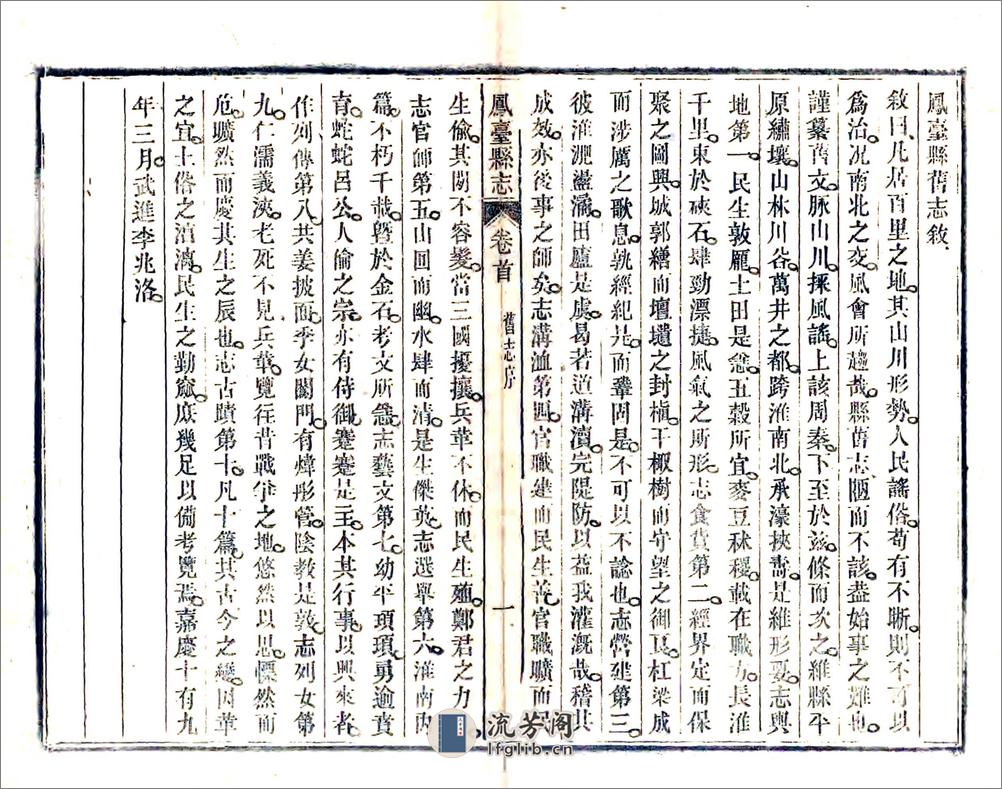 鳳臺縣舊志敘
敘曰凡居百里之地其山川形勢人民謠俗苟有不晰則不可以
爲治況南北之交風會所趨哉縣舊志陋而不該蓋始事之難也
謹纂舊文脉山川採風謠上該周秦下至於茲條而次之維縣平
原繡壤山林川谷萬井之都跨淮南北承濠挾壽是維形要志輿
地第一民生敦龎土田是憖五穀所宜麥豆秫稷載在職方長淮
千里東於硤石肆勁漂捷風氣之所形志食貨第二經界定而保
聚之圖興城郭繕而壇壝之封稹干橛樹而守望之御夏杠梁成
而涉厲之歌息孰經紀是而鞏固是不可以不諗也志營建第三
彼淮淝澨灟田廬是虞曷若道溝瀆完隄防以益我灌溉哉稽其
成效亦後事之師矣志溝洫第四官職建而民生善官職曠而民
鳳臺縣志
卷首
舊志序
一
生偷其閒不容髮當三國擾攘兵革不休而民生殖鄭君之力
志官師第五山回而幽水肆而清是生傑英志選舉第六淮南內
篇不朽千載曁於金石考文所憖志藝文第七幼平頊頊勇逾賁
育蛇蛇呂公人倫之宗亦有侍御蹇蹇是王本其行事以興來者
作列傳第八共姜披面季女闔門有煒彤管陰教是敦志列女第
九仁濡義浹老死不見兵革覽往昔戰爭之地悠然以思慄然而
危曠然而慶其生之辰也志古蹟第十凡十篇其古今之變因革
之宜土俗之湻漓民生之勤窳庶幾足以僃考覽焉嘉慶十有九
年三月武進李兆洛
流芳阁
lfglib.cn